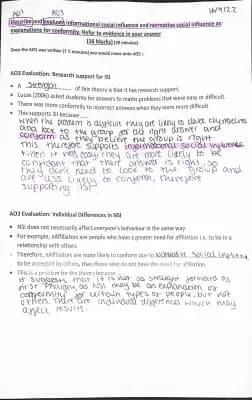 AO1 AO3 14/9/22
Describe and evaluate informational social influence and normative social influence as
explanations for conformity. Refer to evidence in your answer
(16 Marks) (20 minutes)
Once the AO1 was written (7 ½ minutes) you would move onto AO3 :-
AO3 Evaluation: Research support for ISI
• A Strength of this theory is that it has research support.
• Lucas (2006) asked students for answers to maths problems that were easy or difficult.
• There was more conformity to incorrect answers when they were more difficult
• This supports ISI because
when the problem is difficult they are likely to doubt themselves
and look to the group for the right answer and
conform as they believe the group is right
this therefore supports informational social influence
when it was easy they are more likely to be
confident that their answer is right, so
they don't need to look to the group and
are less likely to conform, therefore
supporting ISI
AO3 Evaluation: Individual Differences in NSI
• NSI does not necessarily affect everyone's behaviour in the same way.
• For example, nAffiliators are people who have a greater need for affiliation i.e. to be in a
relationship with others
• Therefore, nAffiliators are more likely to conform due to Normative Social Influence
to be accepted by others, than those who do not have this need for affiliation
• This is a problem for the theory because
it suggests that it is not as straight forward as
first thought, as NSI may be an explanation of
conformity for certain types of people, but not
others. There are individual differences which may
affect results.